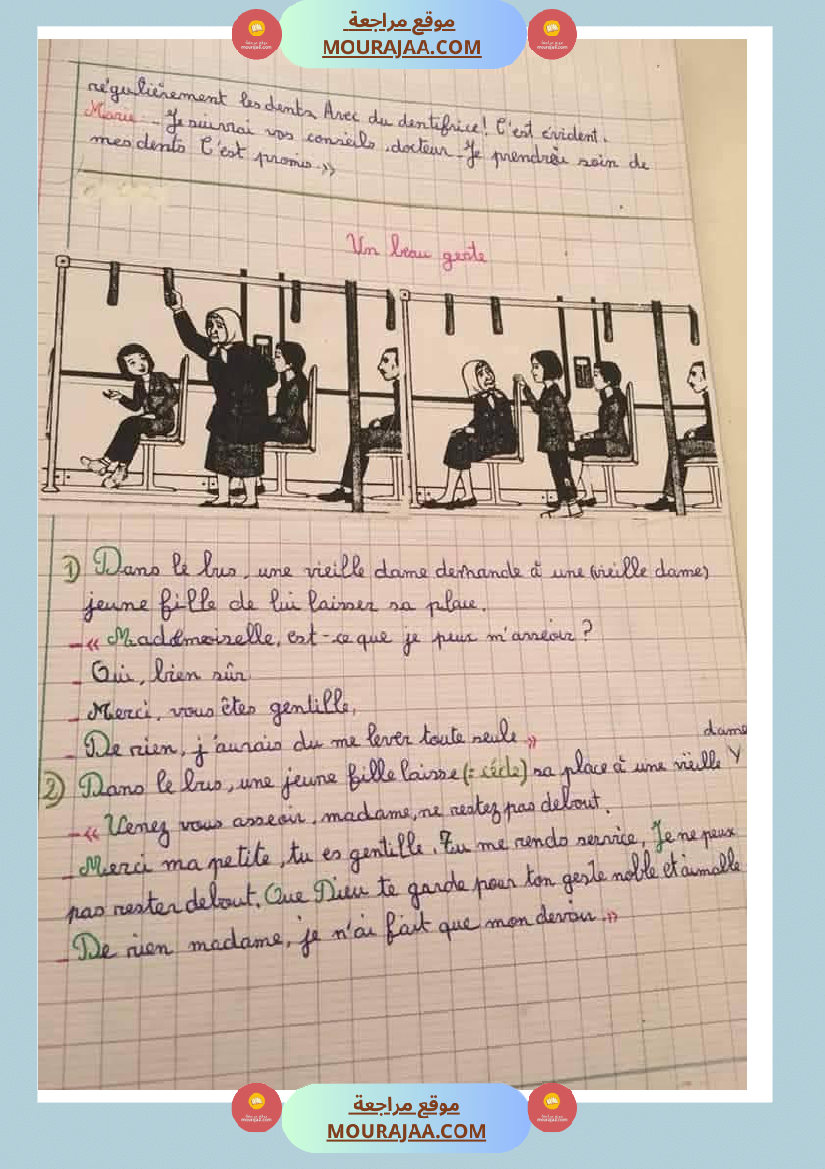 موقع مراجعة
MOURAJAA.COM
régulièrement les dents Avec du dentifrice! C'est évident.
Marie - Je suivrai vos conseils, docteur - Je prendrai soin de
mes dents C'est promis. »
Un beau geste
1) Dans le bus, une vieille dame demande à une (vieille dame)
jeune fille de lui laisser sa place.
- « Mademoiselle, est-ce que je peux m'asseoir ?
- Oui, bien sûr
- Merci, vous êtes gentille,
- De rien, j'aurais du me lever toute seule »
dame
2) Dans le bus, une jeune fille laisse (= cède) sa place à une vieille
- « Venez vous asseoir, madame, ne restez pas debout.
- Merci ma petite, tu es gentille. Tu me rends service, Je ne peux
pas rester debout. Que Dieu te garde pour ton geste noble et aimable
- De rien madame, je n'ai fait que mon devoir. »
موقع مراجعة
MOURAJAA.COM